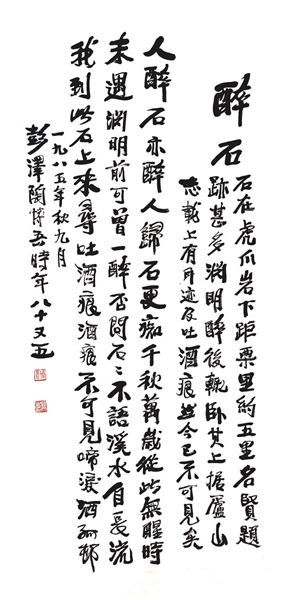 醉石
石在虎爪岩下距栗里約五里名賢題
跡甚多淵明醉後輒卧其上據廬山
志載上有耳迹及吐酒痕然今已不可見矣
人醉石亦醉人歸石更痴千秋萬歲從此無醒時
未遇淵明前可曾一醉否問石〻不語溪水自長流
我到此石上來尋吐酒痕酒痕不可見啼淚酒孤邨
一九八五年秋九月
彭澤陶博吾時年八十又五